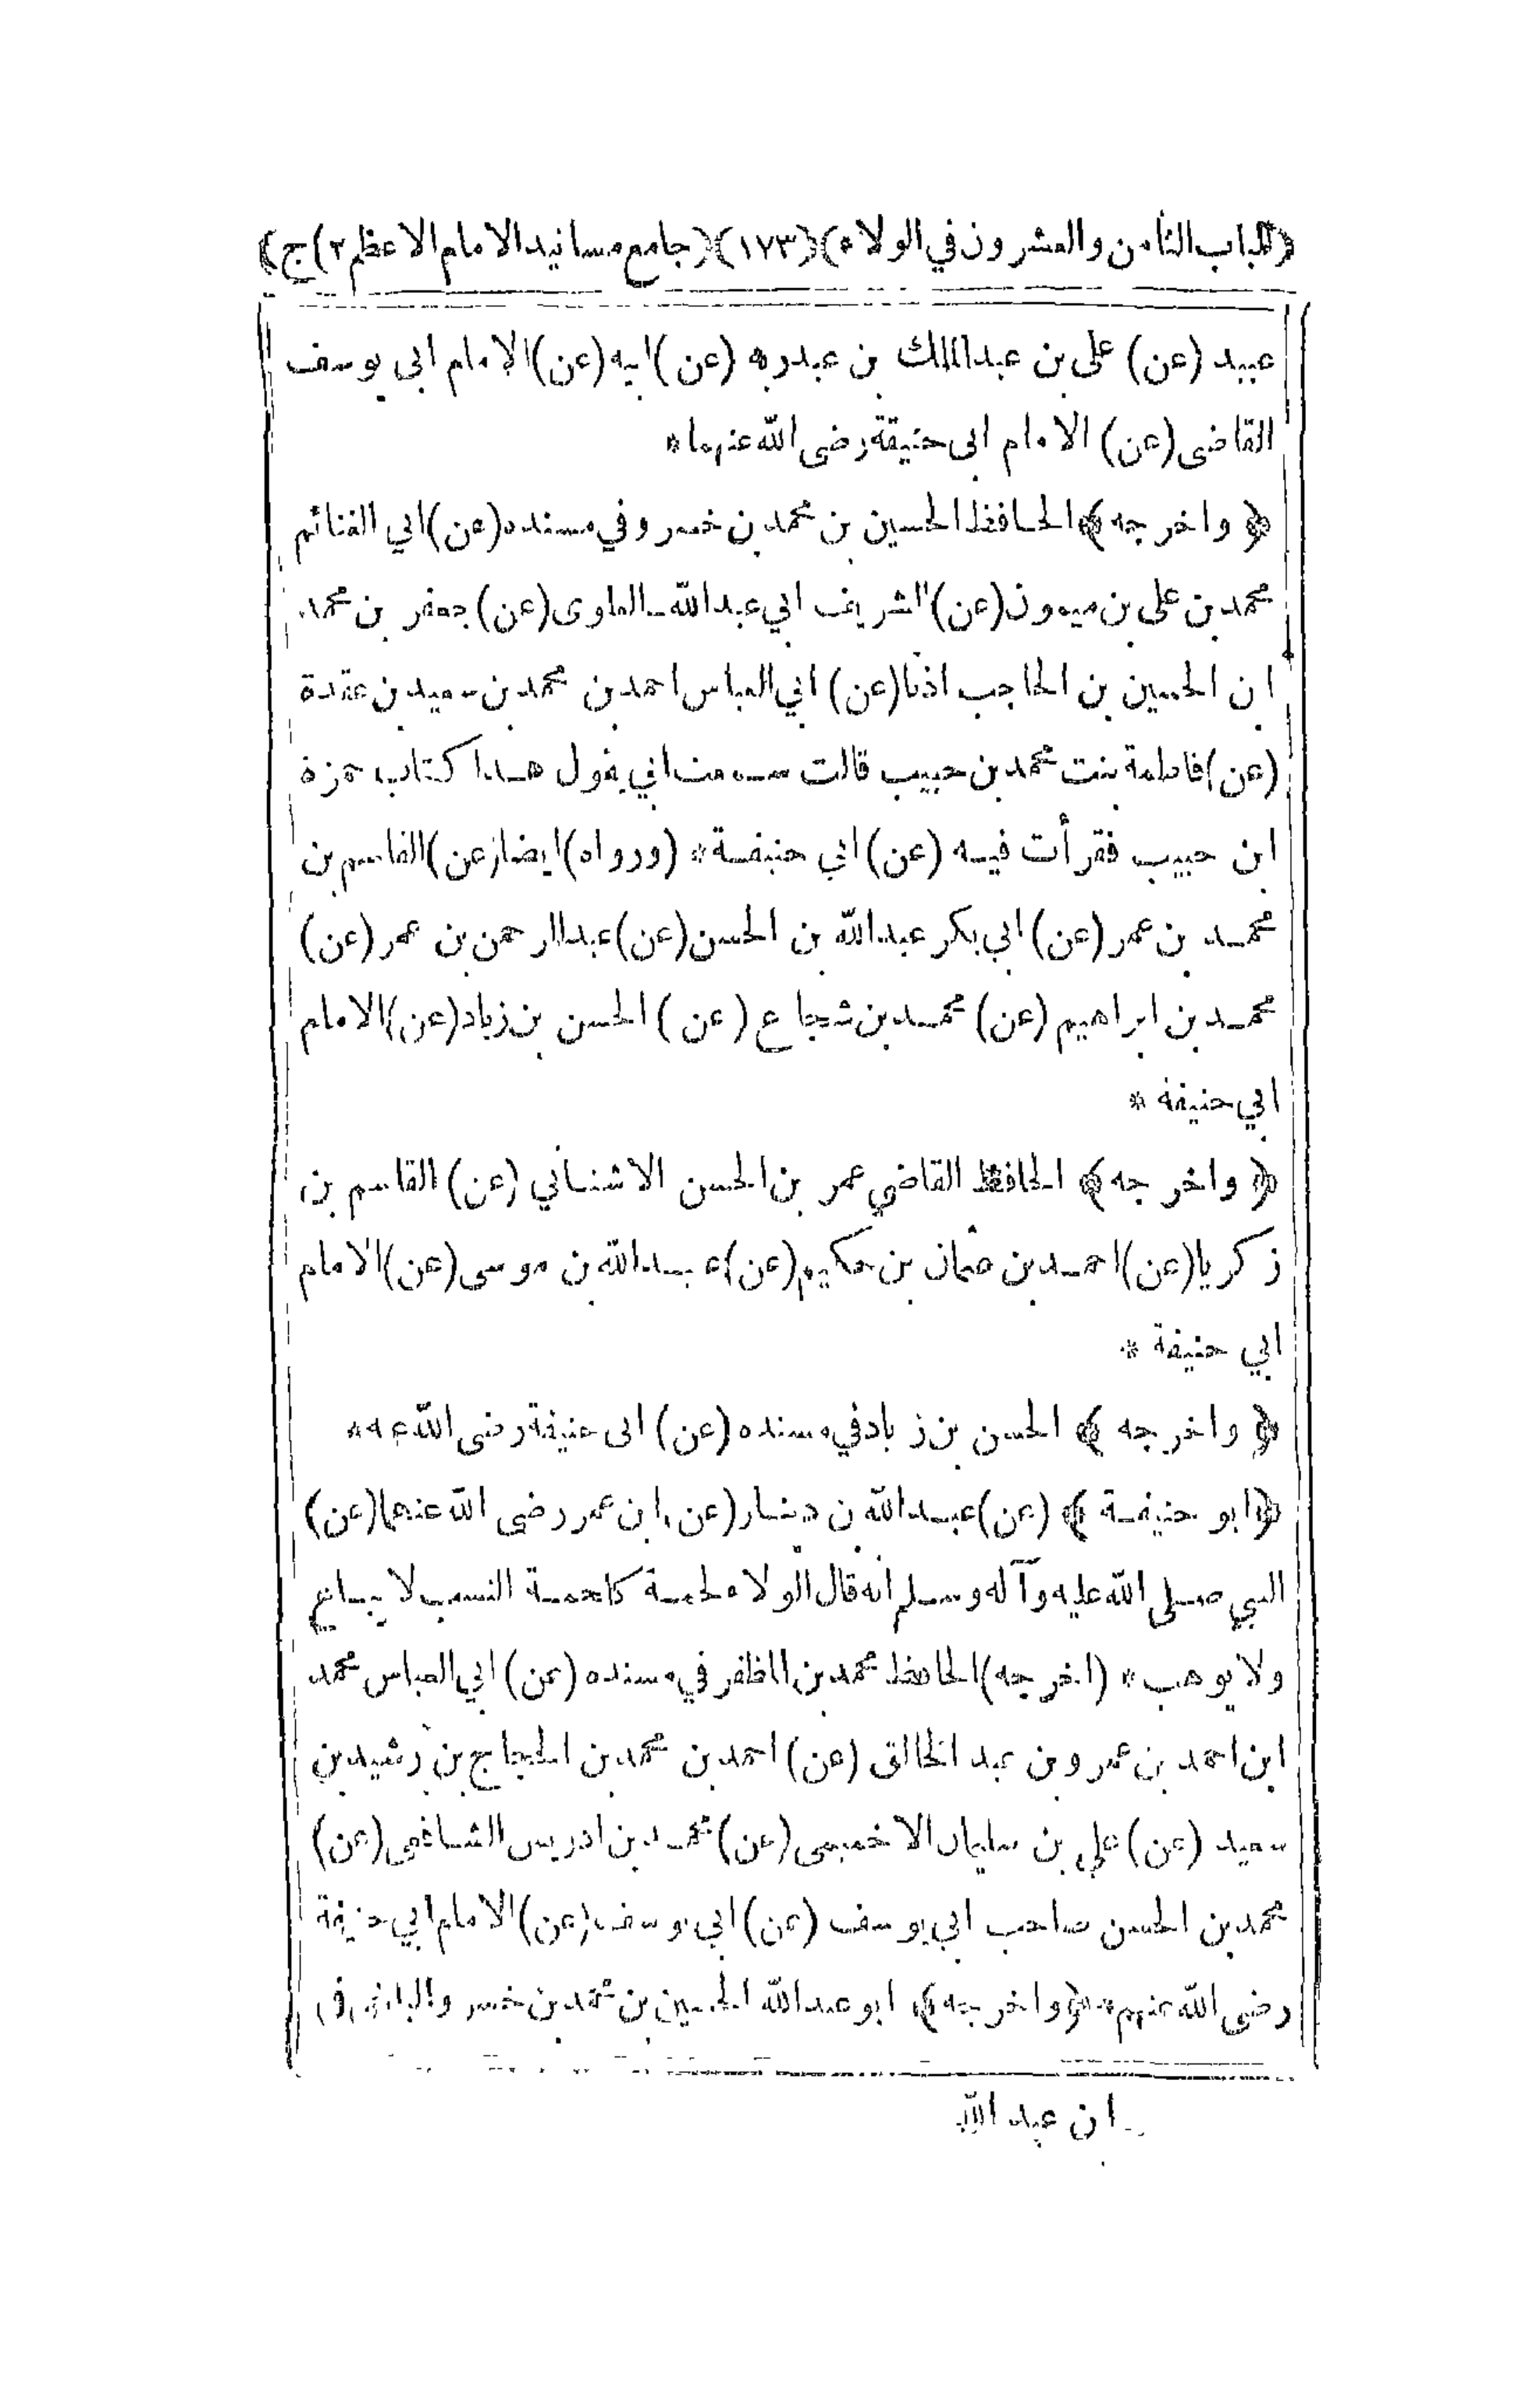 ﴿الباب الثامن والعشرون في الولاء﴾ (١٧٣) ﴿جامع مسانيد الامام الاعظم ج (٢﴾
عبيد (عن) على بن عبدالملك بن عبدربه (عن) ابيه (عن) الامام ابى يوسف
القاضى (عن) الامام ابى حنيفة رضى الله عنهما *
﴿ واخرجه ﴾ الحافظ الحسين بن محمد بن خسرو في مسنده (عن) ابي الغنائم
محمد بن على بن ميمون (عن) الشريف ابي عبدالله العلوى (عن) جعفر بن محمد
ابن الحسين بن الحاجب اذنا (عن) ابي العباس احمد بن محمد بن سعيد بن عقدة
(عن) فاطمة بنت محمد بن حبيب قالت سمعت ابي يقول هذا كتاب حمزة
ابن حبيب فقرأت فيه (عن) ابي حنيفة * (ورواه) ايضا (عن) القاسم بن
محمد بن عمر (عن) ابي بكر عبدالله بن الحسن (عن) عبدالرحمن بن عمر (عن)
محمد بن ابراهيم (عن) محمد بن شجاع (عن) الحسن بن زياد (عن) الامام
ابي حنيفة *
﴿ واخرجه ﴾ الحافظ القاضي عمر بن الحسن الاشناني (عن) القاسم بن
زكريا (عن) احمد بن عثمان بن حكيم (عن) عبيدالله بن موسى (عن) الامام
ابي حنيفة *
﴿ واخرجه ﴾ الحسن بن زياد في مسنده (عن) ابى حنيفة رضى الله عنه *
﴿ابو حنيفة ﴾ (عن) عبدالله بن دينار (عن) ابن عمر رضى الله عنهما (عن)
النبي صلى الله عليه وآله وسلم انه قال الولاء لحمة كلحمة النسب لا يباع
ولا يوهب * (اخرجه) الحافظ محمد بن المظفر في مسنده (عن) ابي العباس محمد
ابن احمد بن عمرو بن عبد الخالق (عن) احمد بن محمد بن الحجاج بن رشيد بن
سعيد (عن) علي بن سليمان الاخميمى (عن) محمد بن ادريس الشافعى (عن)
محمد بن الحسن صاحب ابي يوسف (عن) ابي يوسف (عن) الامام ابي حنيفة
رضى الله عنهم * ﴿واخرجه﴾ ابو عبدالله الحسين بن محمد بن خسرو البلخى في
ابن عبد الله